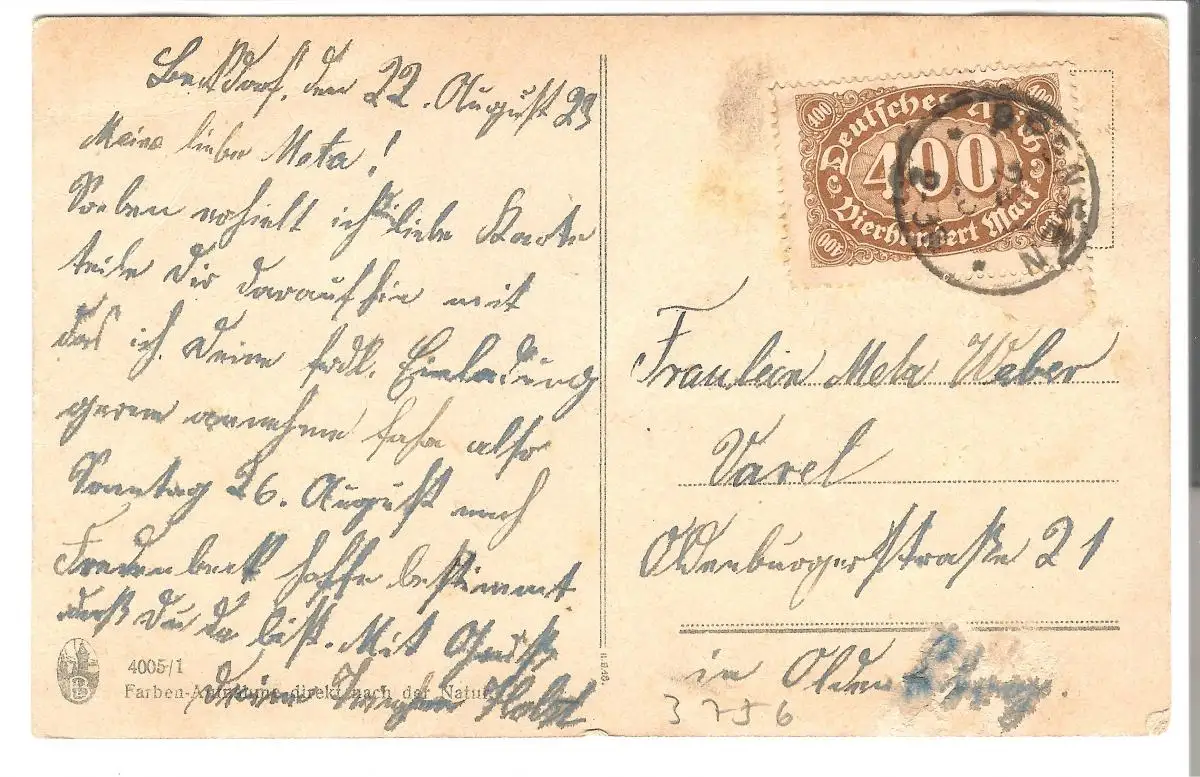 Beckdorf, den 22. August 23
Meine liebe Meta!
Soeben erhielt ich liebe Karte
teile Dir daraufhin mit
das ich Deine frdl. Einladung
gerne annehme fahre also
Sonntag 26. August nach
Fredenbeck hoffe bestimmt
daß Du da bist. Mit Gruß,
Deine Holst
4005/1
Farben-Aufnahme direkt nach der Natur
Deutsches Reich
400
Vierhundert Mark
Fräulein Meta Weber
Varel
Oldenburgerstraße 21
in Oldenburg.
3756